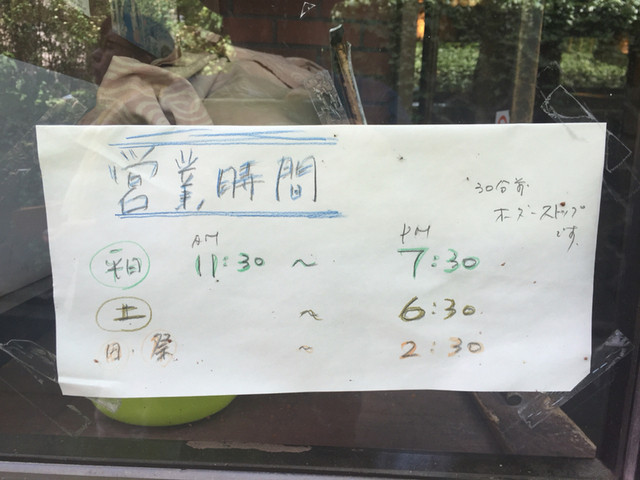 営業時間
30分前
オーダーストップ
です。
AM PM
平日 11:30 ~ 7:30
土 ~ 6:30
日・祭 ~ 2:30